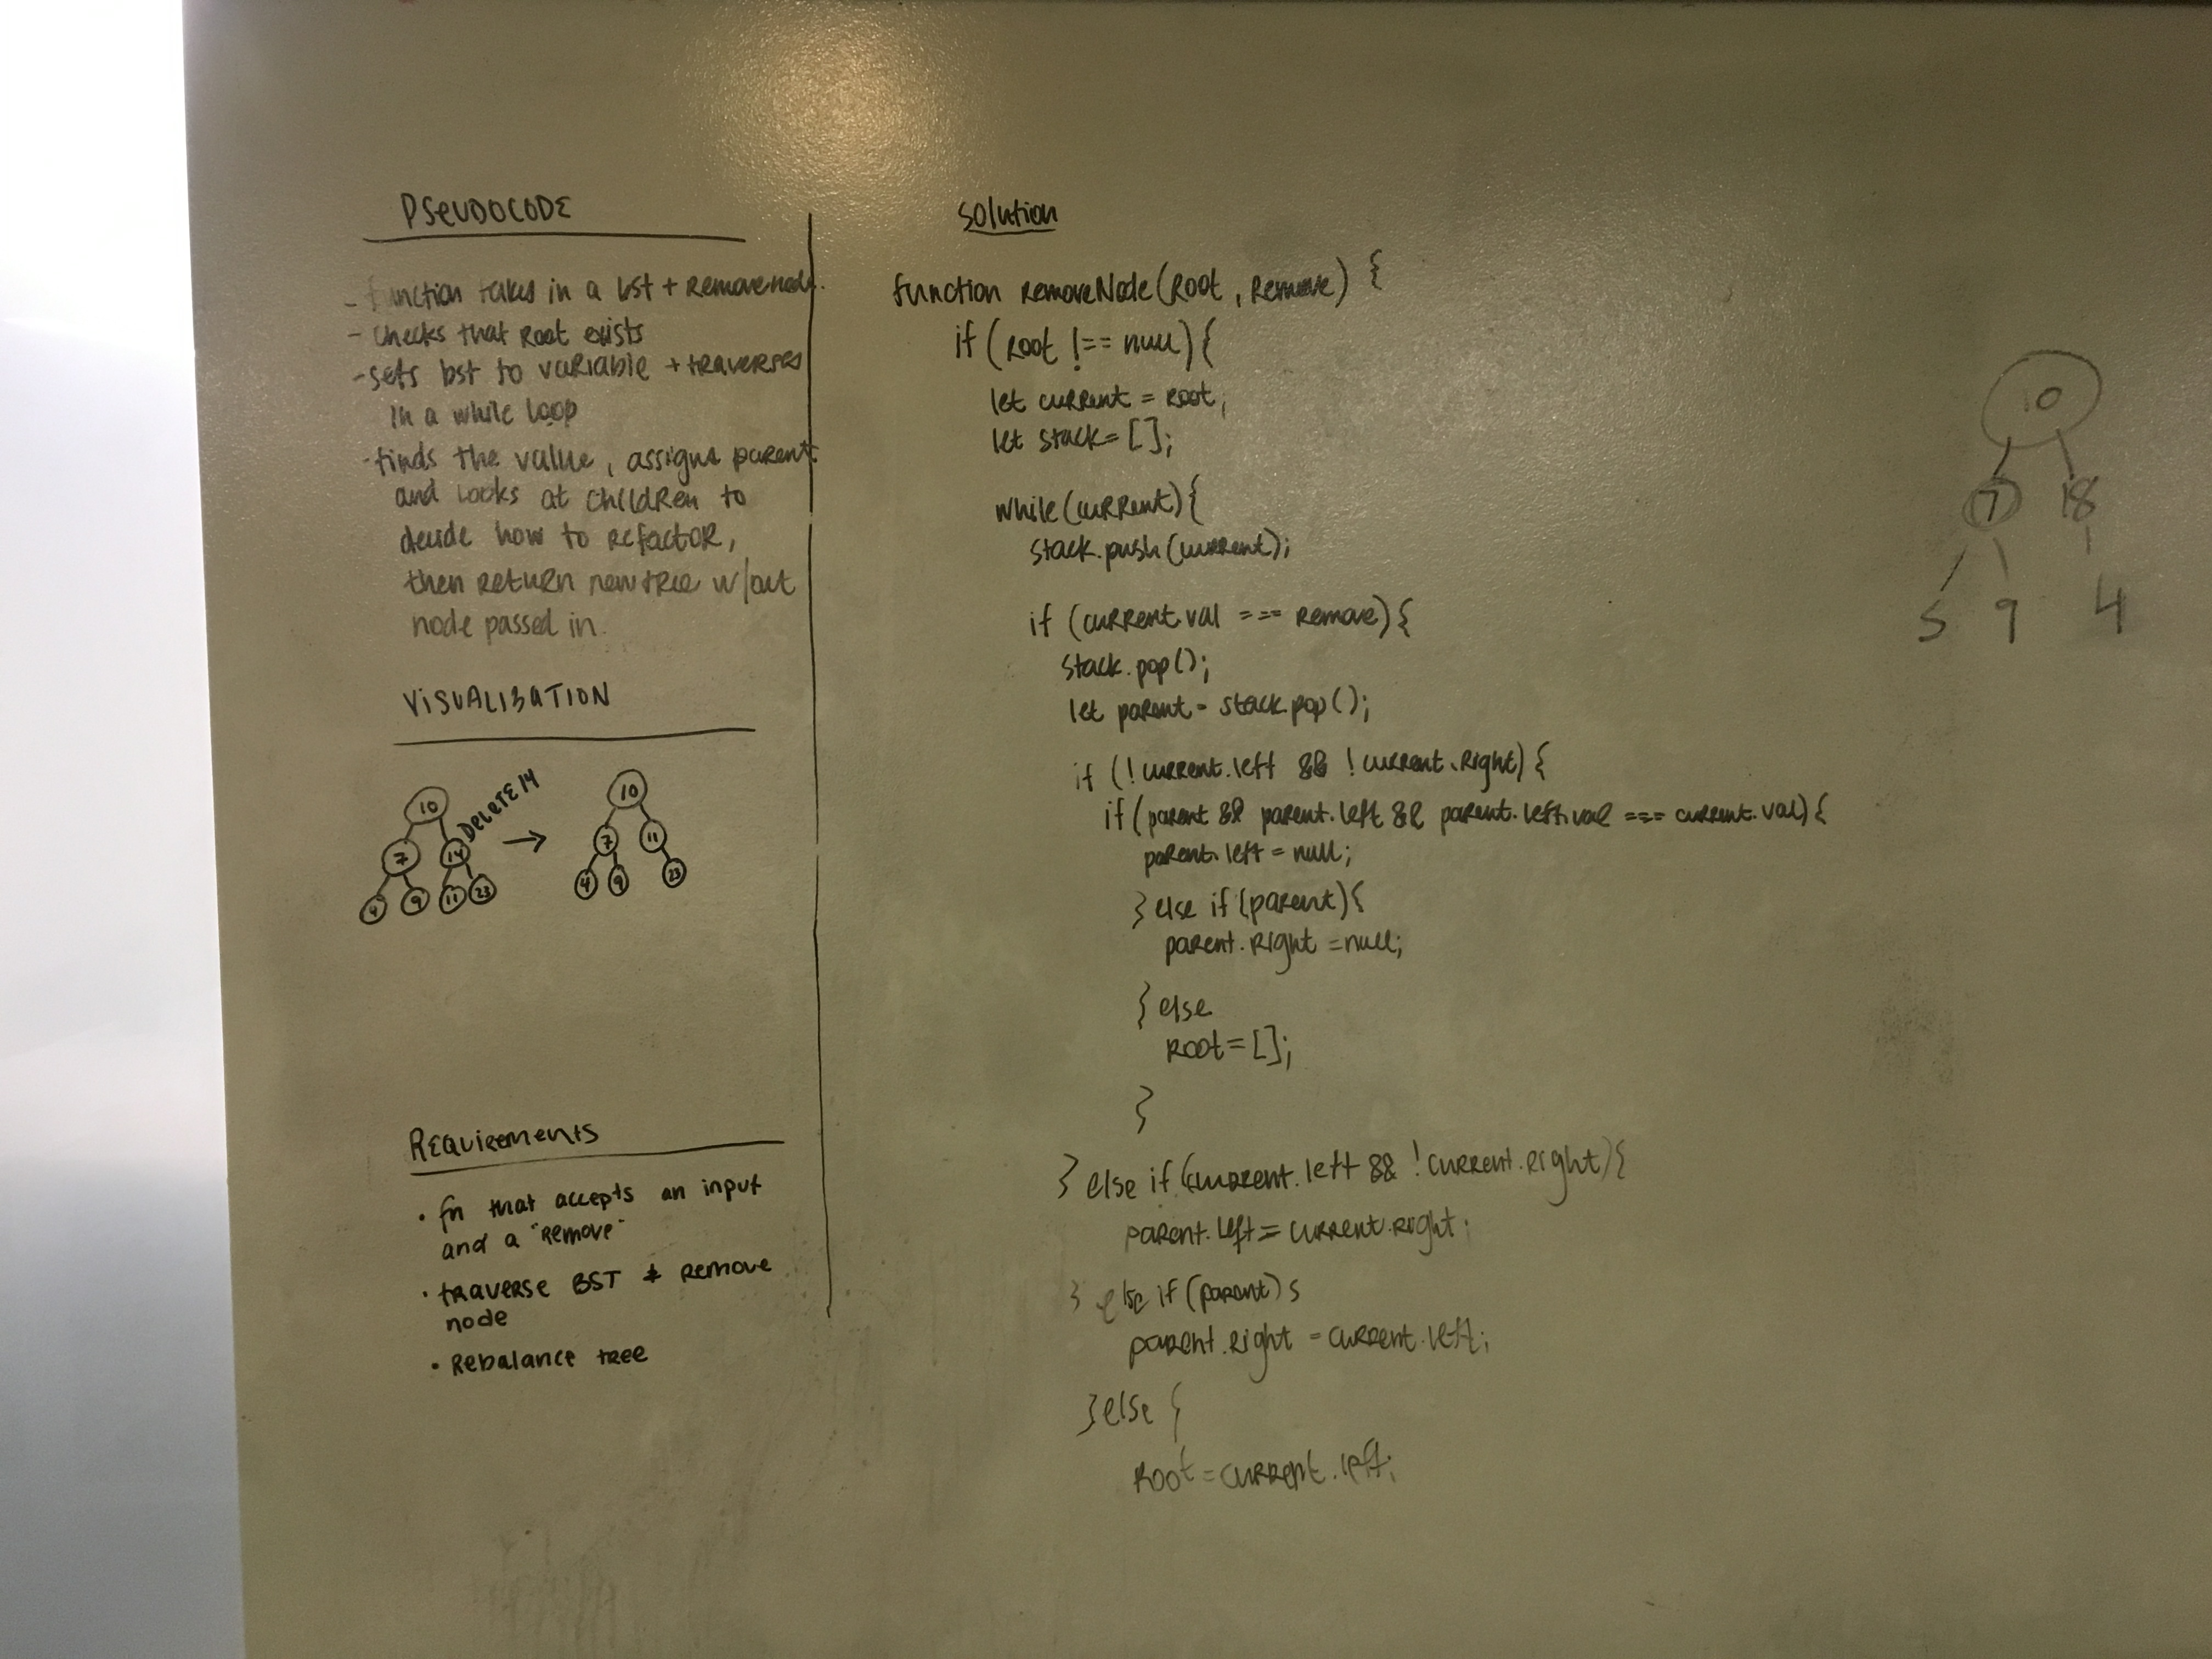 PSEUDOCODE
- function takes in a bst + removenode.
- checks that Root exists
- sets bst to variable + traverses
in a while loop
- finds the value, assigns parent
and looks at children to
decide how to refactor,
then return new tree w/out
node passed in.
VISUALIZATION
10
DELETE 14
7
14
4
9
11
23
→
10
7
11
4
9
23
Requirements
• fn that accepts an input
and a "remove"
• traverse BST & remove
node
• Rebalance tree
Solution
function removeNode(Root, Remove) {
if (Root !== null) {
let current = root;
let stack = [];
while (current) {
stack.push(current);
if (current.val === remove) {
stack.pop();
let parent = stack.pop();
if (!current.left && !current.right) {
if (parent && parent.left && parent.left.val === current.val) {
parent.left = null;
} else if (parent) {
parent.right = null;
} else
Root = [];
}
} else if (current.left && !current.right) {
parent.left = current.right;
} else if (parent) {
parent.right = current.left;
} else {
Root = current.left;
10
7 18
5 9 4